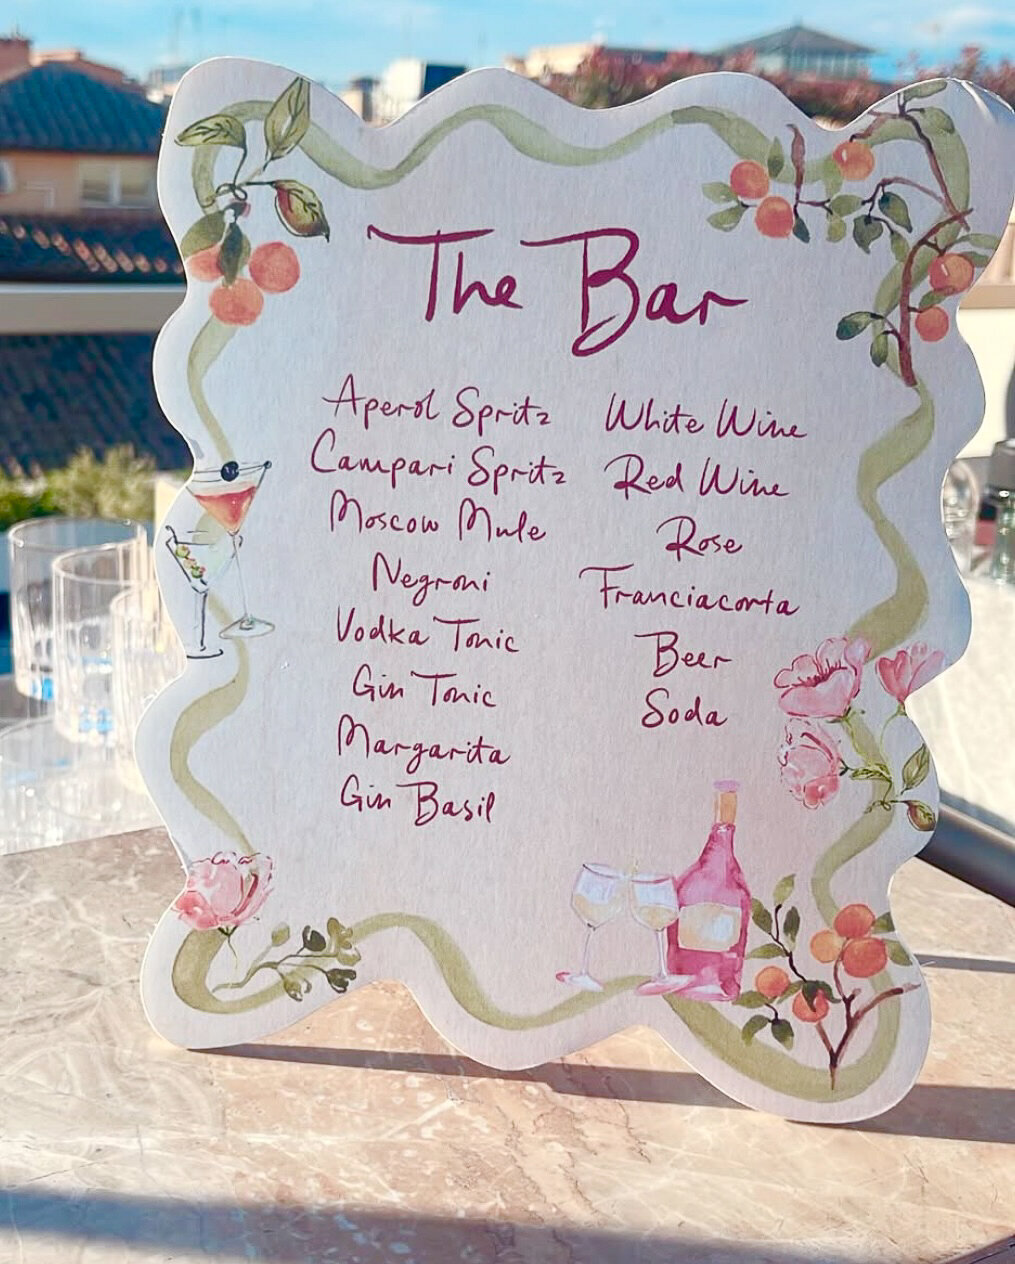 The Bar
Aperol Spritz
Campari Spritz
Moscow Mule
Negroni
Vodka Tonic
Gin Tonic
Margarita
Gin Basil
White Wine
Red Wine
Rose
Franciacorta
Beer
Soda